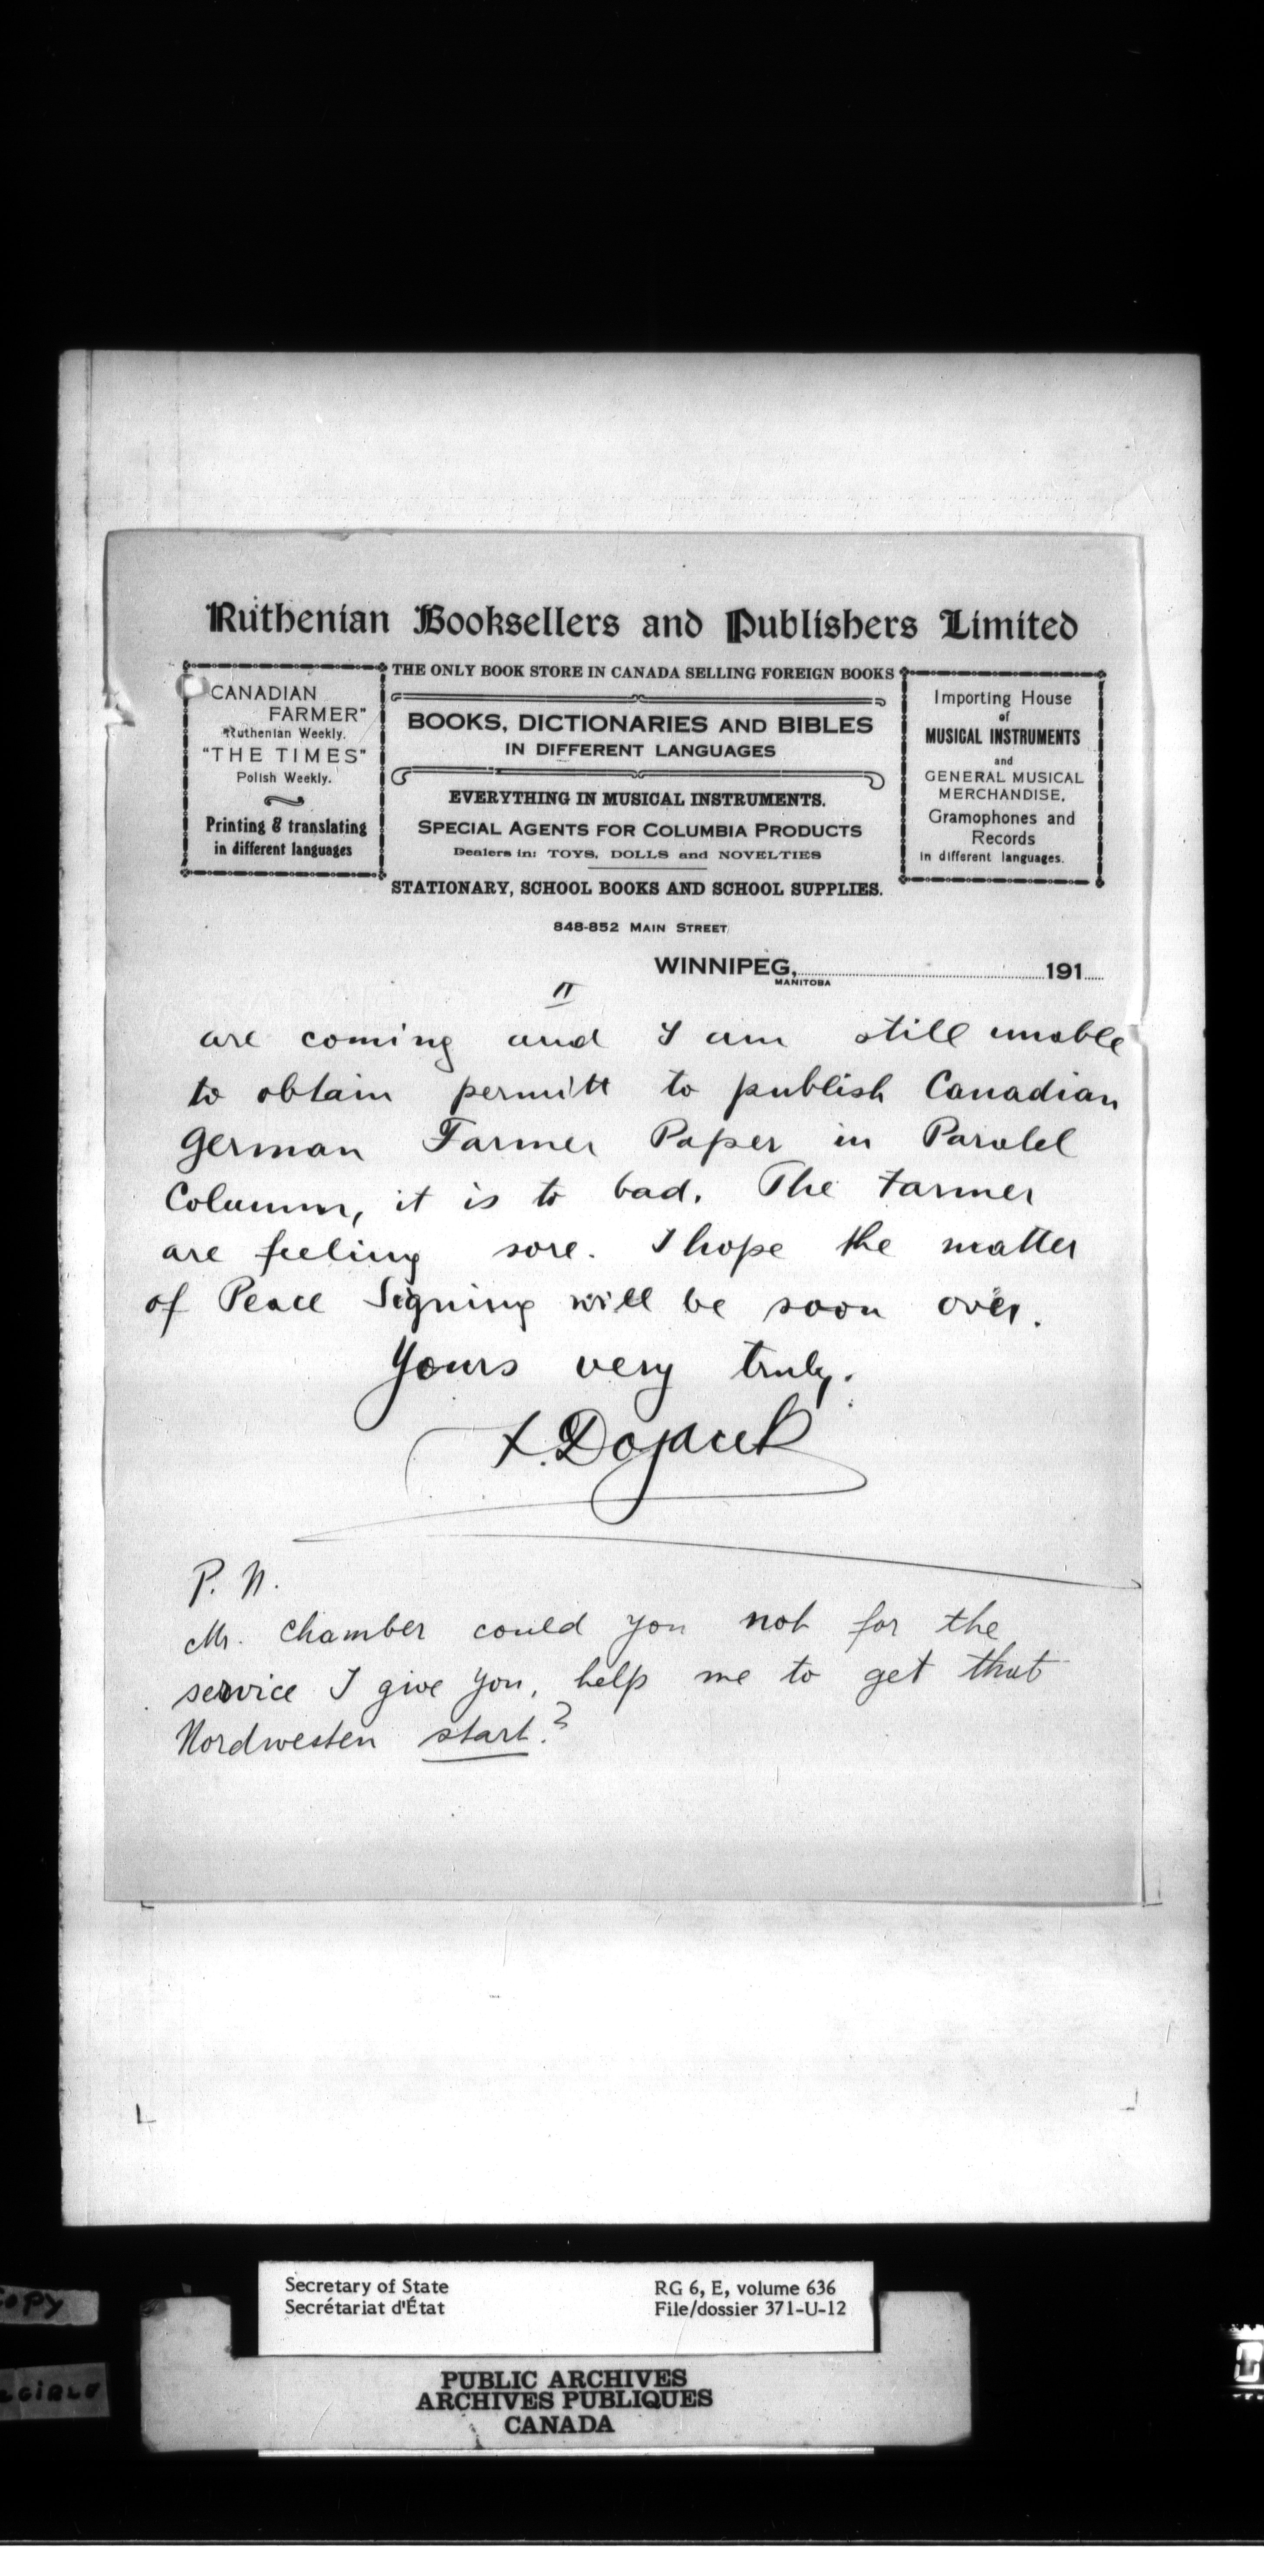 Ruthenian Booksellers and Publishers Limited
THE ONLY BOOK STORE IN CANADA SELLING FOREIGN BOOKS
CANADIAN
FARMER"
Ruthenian Weekly.
"THE TIMES"
Polish Weekly.
Printing & translating
in different languages
BOOKS, DICTIONARIES AND BIBLES
IN DIFFERENT LANGUAGES
EVERYTHING IN MUSICAL INSTRUMENTS.
SPECIAL AGENTS FOR COLUMBIA PRODUCTS
Dealers in: TOYS, DOLLS and NOVELTIES
STATIONARY, SCHOOL BOOKS AND SCHOOL SUPPLIES.
Importing House
of
MUSICAL INSTRUMENTS
and
GENERAL MUSICAL
MERCHANDISE,
Gramophones and
Records
in different languages.
848-852 MAIN STREET
WINNIPEG, 191
MANITOBA
II
are coming and I am still unable
to obtain permitt to publish Canadian
German Farmer Paper in Paralel
Columm, it is to bad. The Farmer
are feeling sore. I hope the matter
of Peace Signing will be soon over.
Yours very truly.
F. Dojacek
P. N.
Mr. Chamber could you not for the
service I give you, help me to get that
Nordwesten start.?
Secretary of State
Secrétariat d'État
RG 6, E, volume 636
File/dossier 371-U-12
PUBLIC ARCHIVES
ARCHIVES PUBLIQUES
CANADA